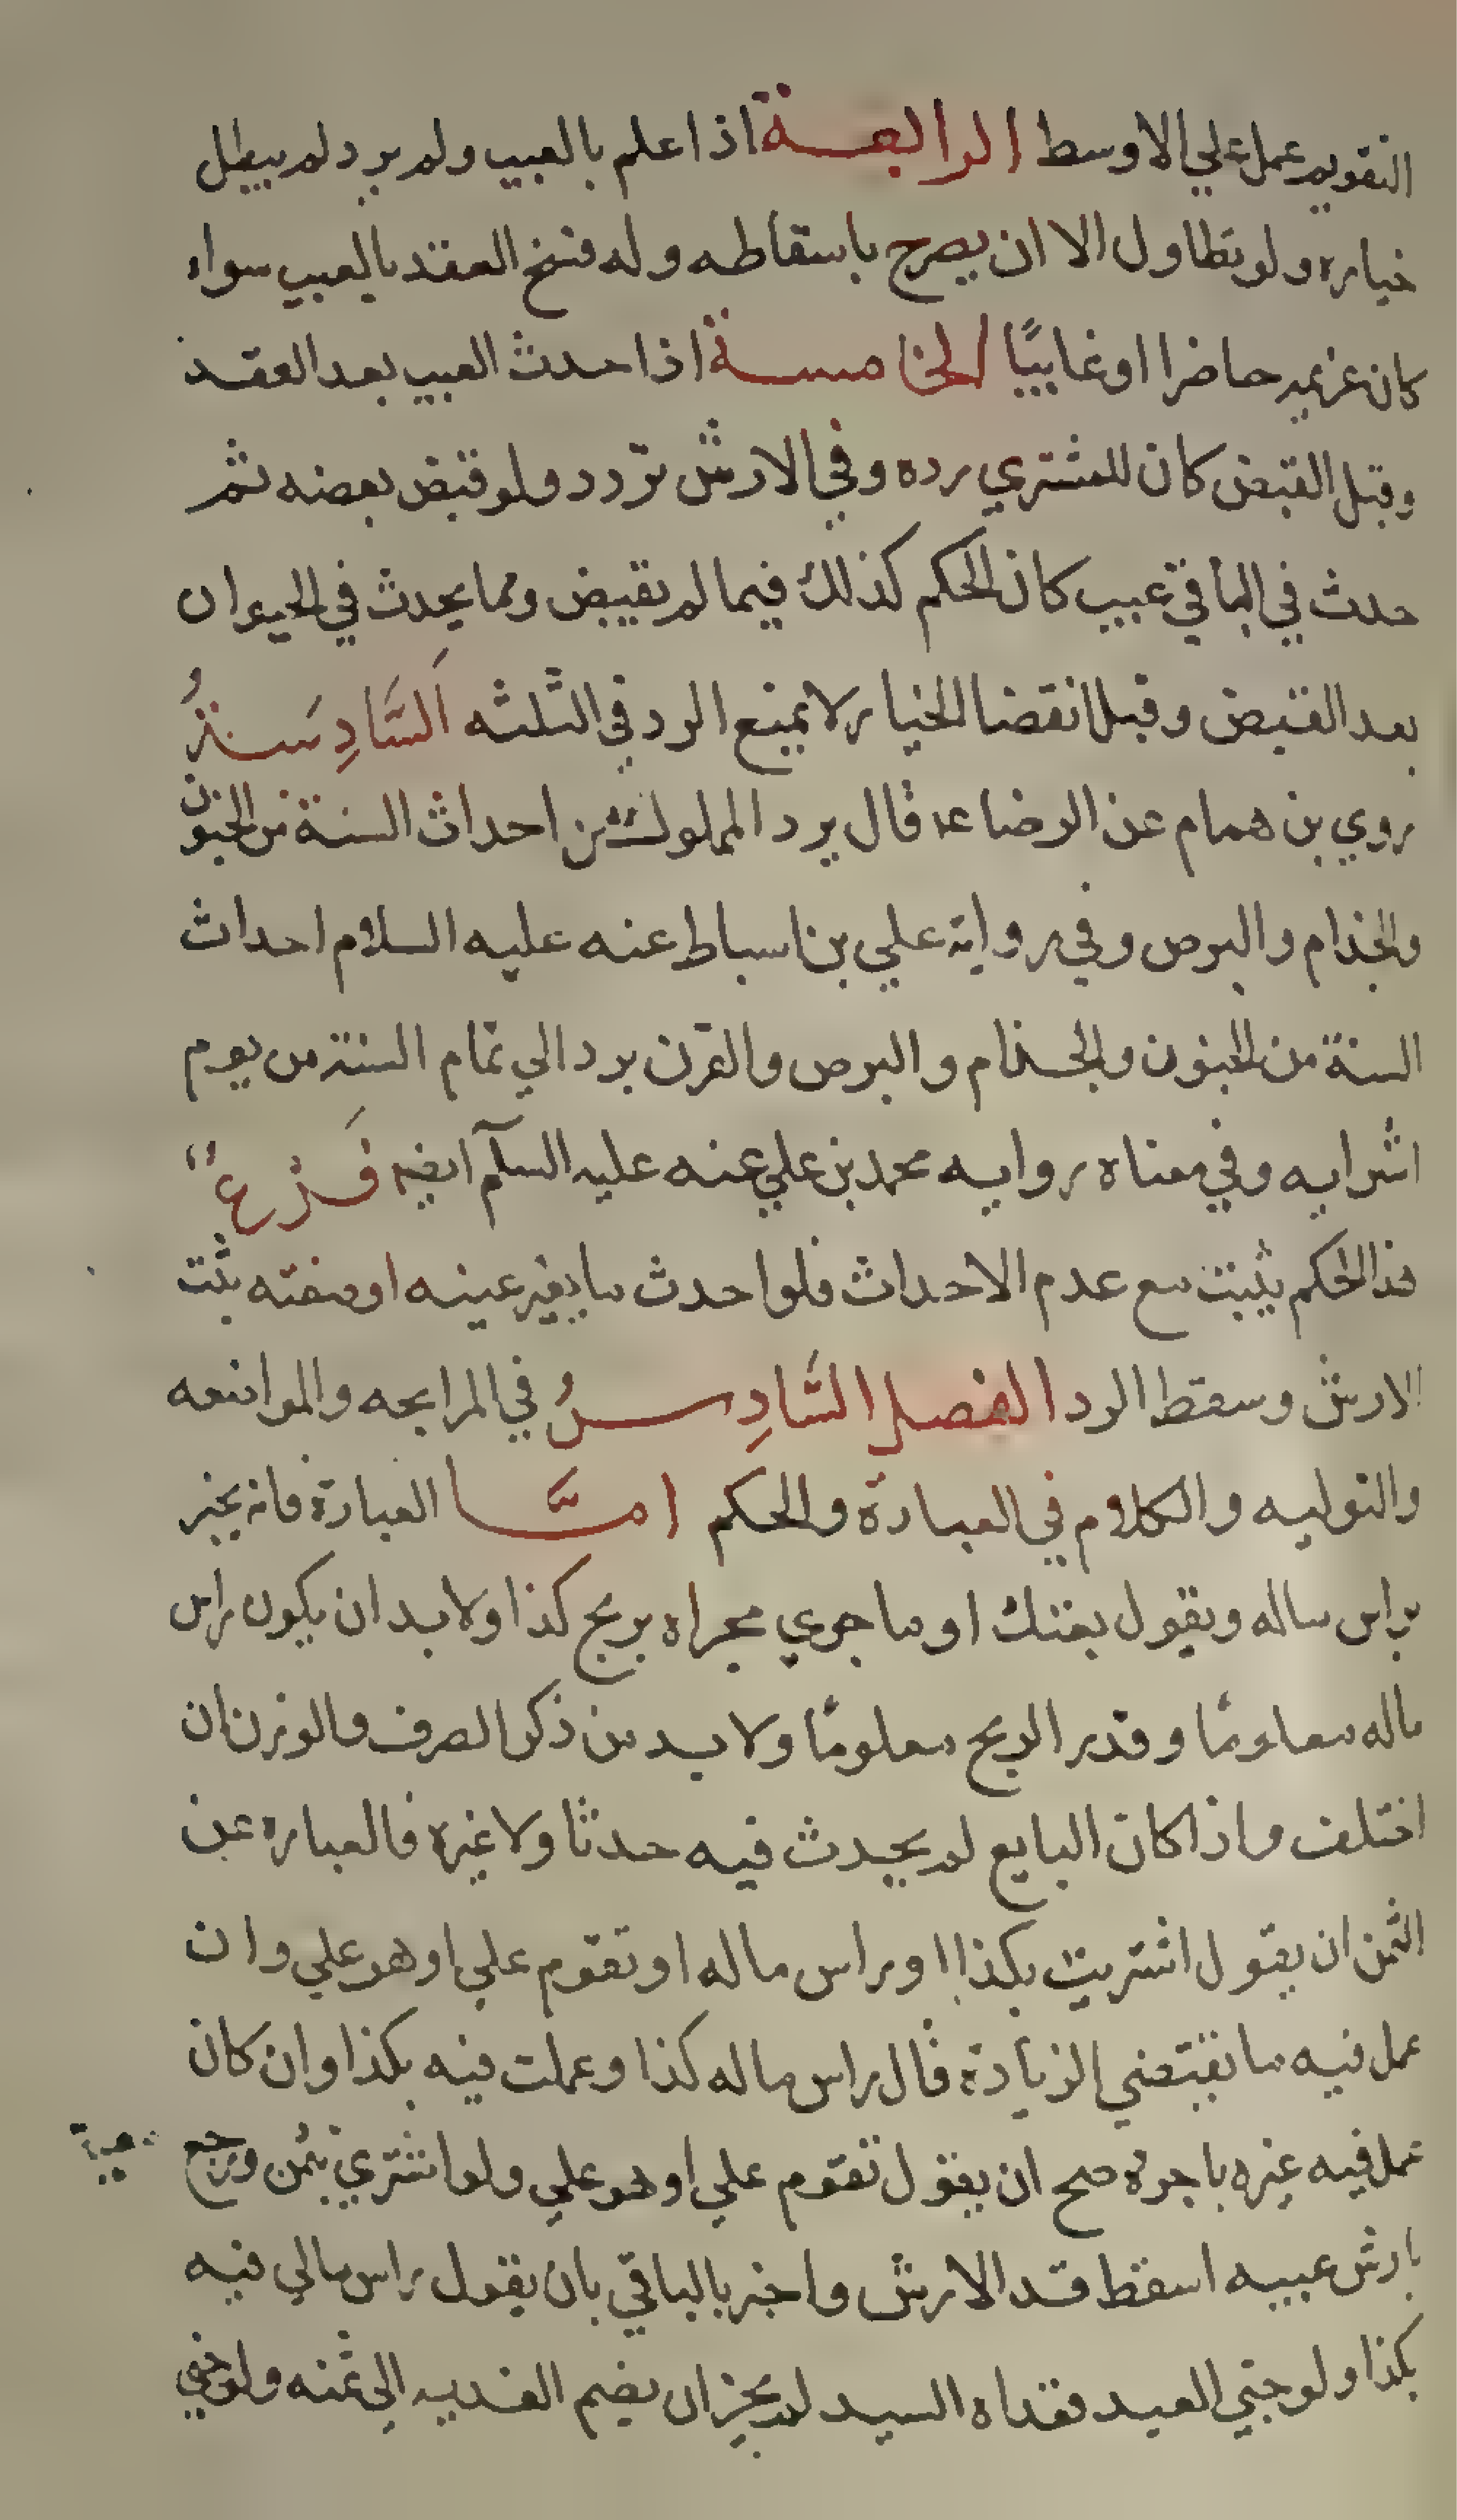 التقويم عمل علي الاوسط الرابعة اذا علم بالعيب ولم يرد لم يبطل
خياره ولو تطاول الا ان يصرح باسقاطه وله فسخ العقد بالعيب سواء
كان غريمه حاضرا او غايبًا الخامسة اذا حدث العيب بعد العقد
وقبل القبض كان للمشتري رده وفي الارش تردد ولو قبض بعضه ثم
حدث في الباقي عيب كان الحكم كذلك فيما لم يقبض وما يحدث في الحيوان
بعد القبض وقبل انقضا الخيار لا يمنع الرد في الثلثه اَلسَّادِسَةُ
روي بن همام عن الرضا عه قال يرد المملوك من احداث السنة من الجنون
والجذام والبرص وفي رواية علي بن اسباط عنه عليه السلام احداث
السنة من الجنون والجذام والبرص والقرن يرد الي تمام السنة من يوم
اشرايه وفي معناه روايه محمد بن علي عنه عليه السلم ايضا فَرْعٌ
هذا الحكم يثبت مع عدم الاحداث فلو احدث ما يغير عينه او صفته ثبت
الارش وسقط الرد الفصل السَّادِسُ في المرابحه والمواضعه
والتوليه والكلام في العبارة والحكم امَّا العبارة فانه يخبر
براس ماله ويقول بعتك او ما جري مجراه بربح كذا ولا بد ان يكون راس
ماله معلومًا وقدر الربح معلومًا ولا بد من ذكر الصرف والوزن ان
اختلف واذا كان البايع لم يحدث فيه حدثا ولا غيره فالعباره عن
الثمن ان يقول اشتريت بكذا او راس ماله او تقوم علي او هو علي وان
عمل فيه ما يقتضي الزيادة قال راس ماله كذا وعملت فيه بكذا وان كان
عمل فيه غيره باجرة صح ان يقول تقوم علي او هو علي ولو اشتري بثمن ورجع
بارش عيبه اسقط قد الارش واخبر بالباقي بان يقول راس مالي فيه
بكذا ولو جني العبد ففداه السيد لم يجز ان يضم الفديه الي ثمنه ولو جني